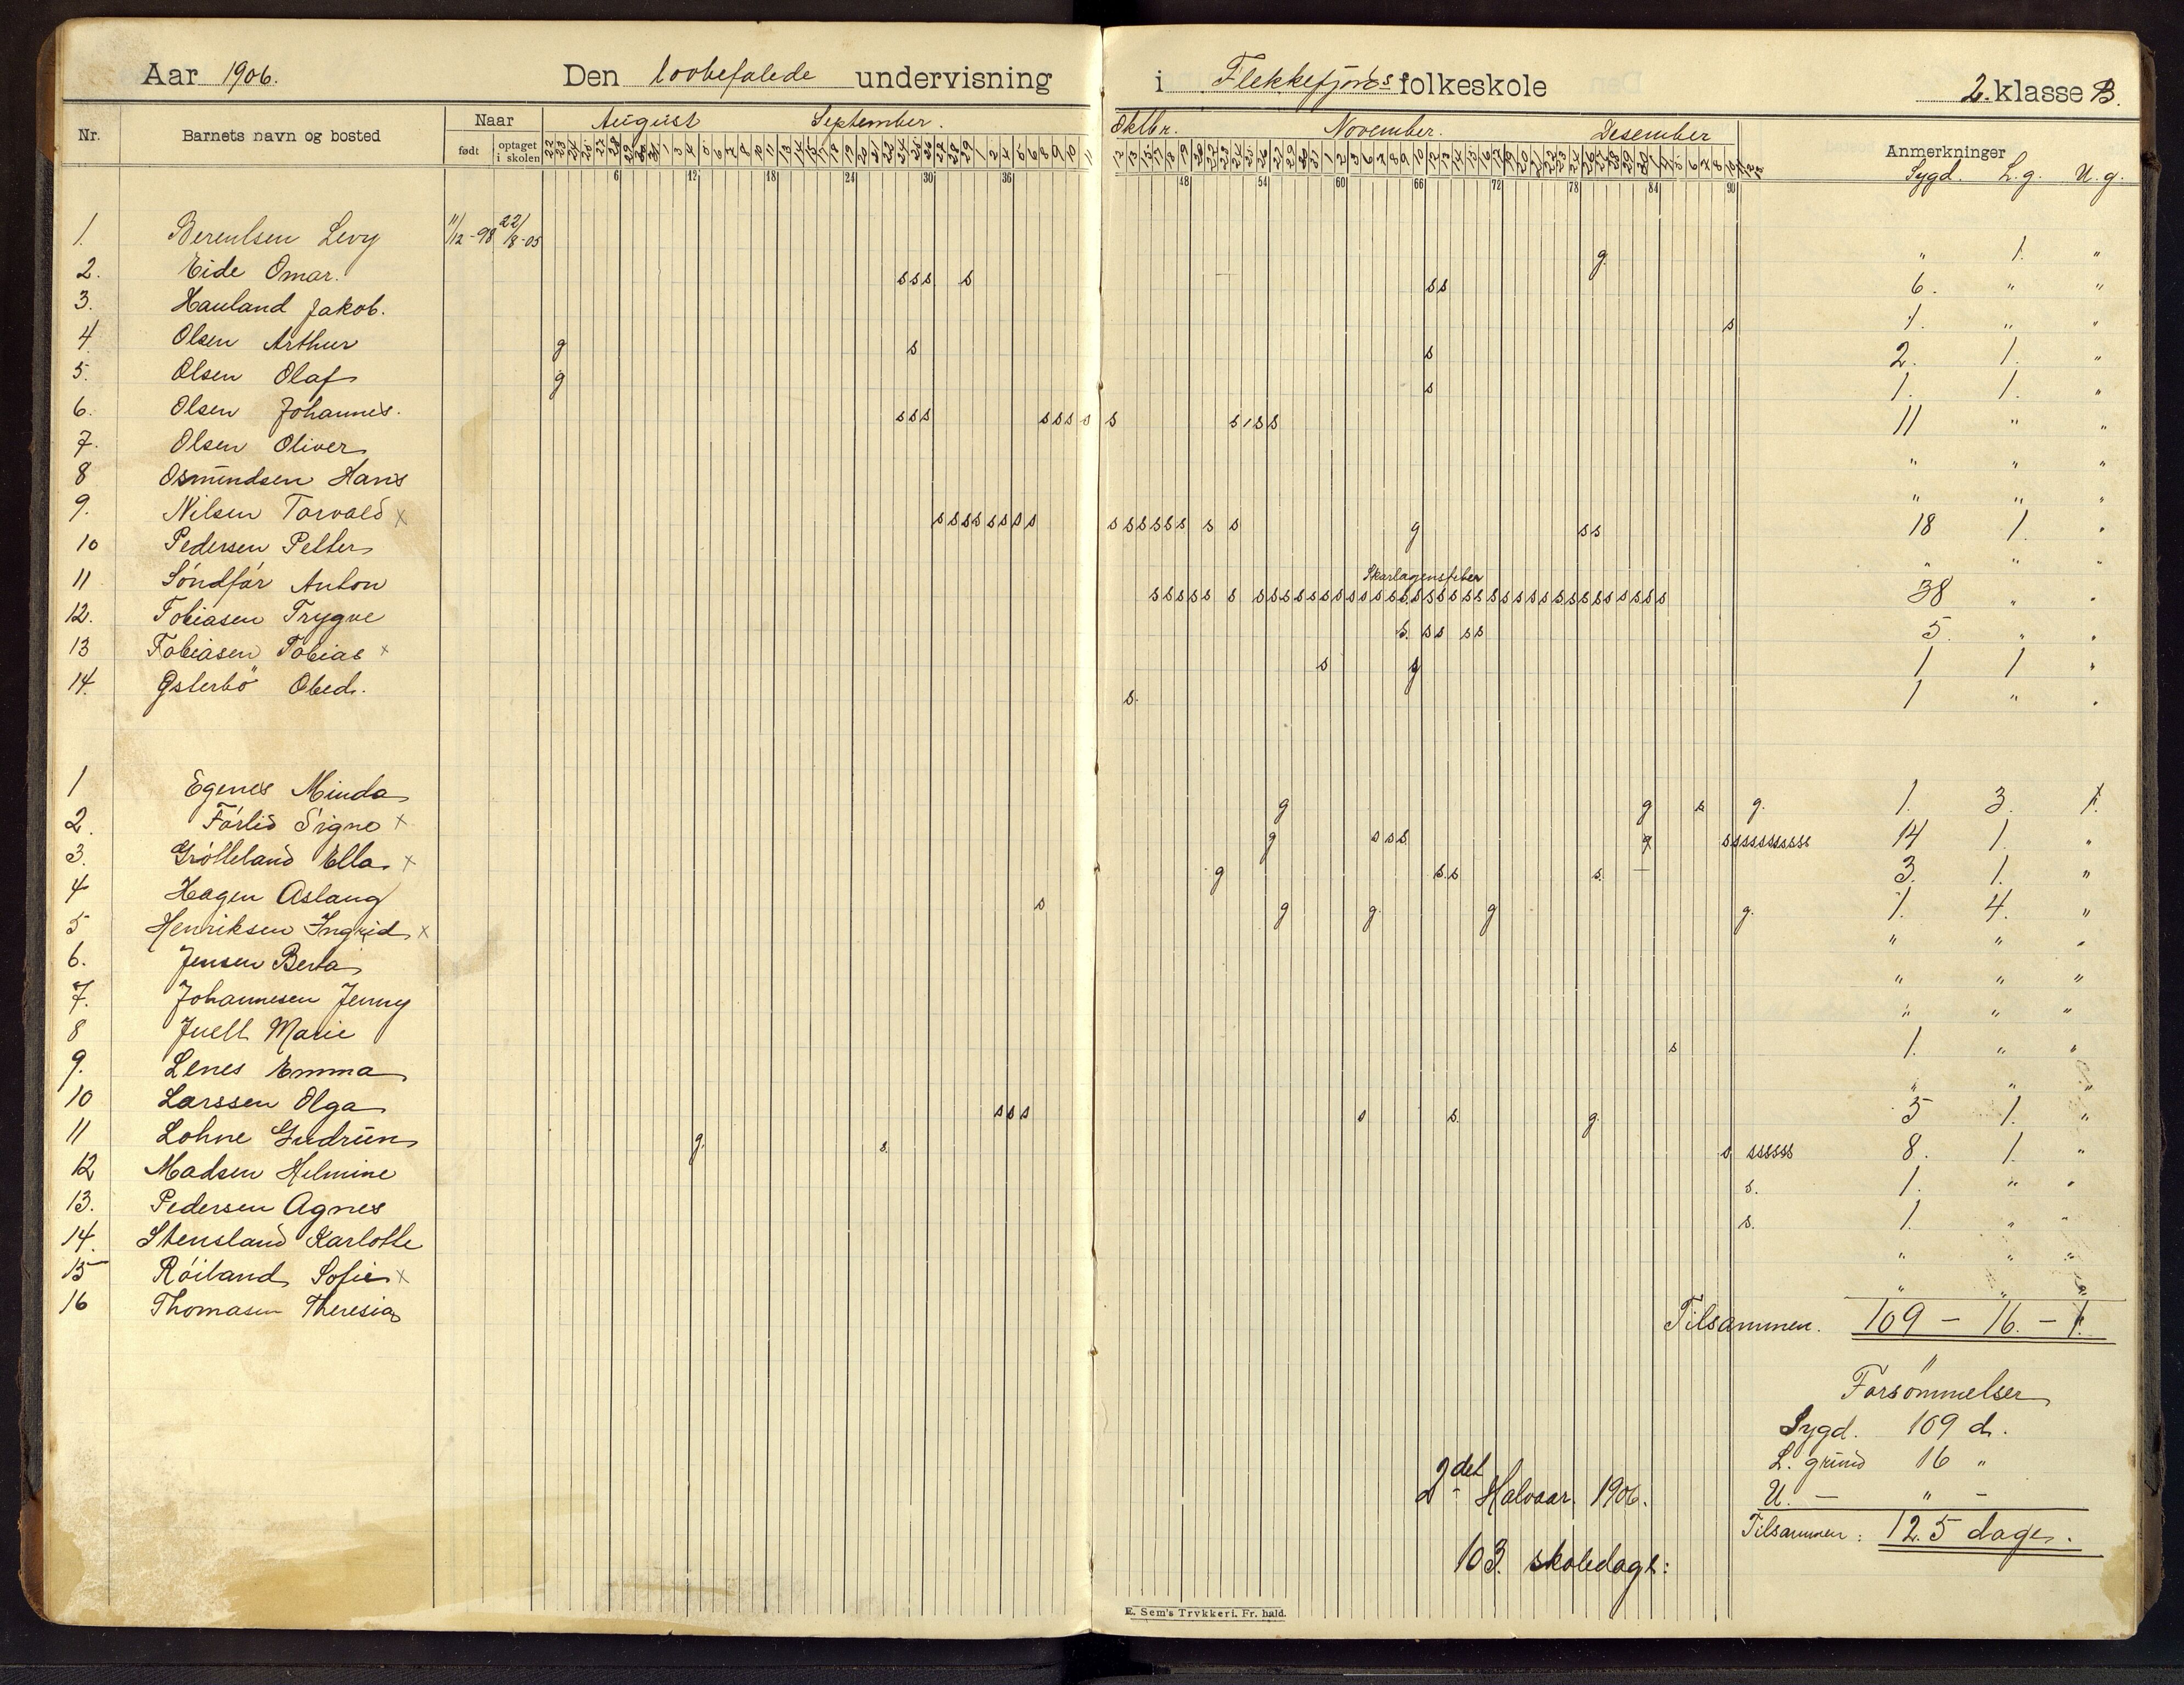 Aar 1906. Den lovbefalede undervisning i Flekkefjords folkeskole 2. klasse B.
Nr. Barnets navn og bosted Naar født optaget i skolen August September. Oktbr. November. Desember Anmerkninger
Sygd. L.g. U.g.
6 12 18 24 30 36 48 54 60 66 72 78 84 90
1. Berentsen Levy 11/12-98 22/8-05 g. " 1. "
2. Eide Omar. sss s ss 6. " "
3. Hauland Jakob. s 1. " "
4 Olsen Arthur g s s 2. 1. "
5. Olsen Olaf g s 1. 1. "
6. Olsen Johannes. sss ssss s ssss 11 " "
7. Olsen Oliver " " "
8 Osmundsen Hans " " "
9. Nilsen Torvald x ssssssss ssssss s s g ss 18 1. "
10 Pedersen Petter " " "
Skarlagensfeber
11 Söndfär Anton 38 " "
12. Tobiasen Trygve s. ss ss 5. " "
13 Tobiasen Tobias x s g 1 1 "
14. Østerbö Obed. s. 1 " "
1 Egenes Minda g g s g. 1. 3. 1.
2. Förlid Signe x g sss g ssssssssss 14 1. "
3. Grötteland Ella x g s.s s. — 3. 1. "
4 Hagen Aslaug s g g. g g. 1. 4. "
5 Henriksen Ingrid x " " "
6. Jensen Berta " " "
7. Johannesen Jenny " " "
8 Juell Marie s 1. " "
9. Lenes Emma " " "
10 Larssen Olga sss s s. g. 5 1. "
11 Lohne Gudrun g. s. s ssssss 8. 1. "
12 Madsen Helmine s. 1. " "
13. Pedersen Agnes s. 1. " "
14. Stensland Karlotte " " "
15 Röiland Sofie x " " "
16 Thomasen Theresia
Tilsammen. 109 — 16. — 1.
"
Forsömmelser
Sygd. 109 d.
L. grund 16 "
U. — " —
Tilsammen: 125 dage.
2det Halvaar. 1906.
103. skoledage:
E. Sem's Trykkeri. Fr. hald.